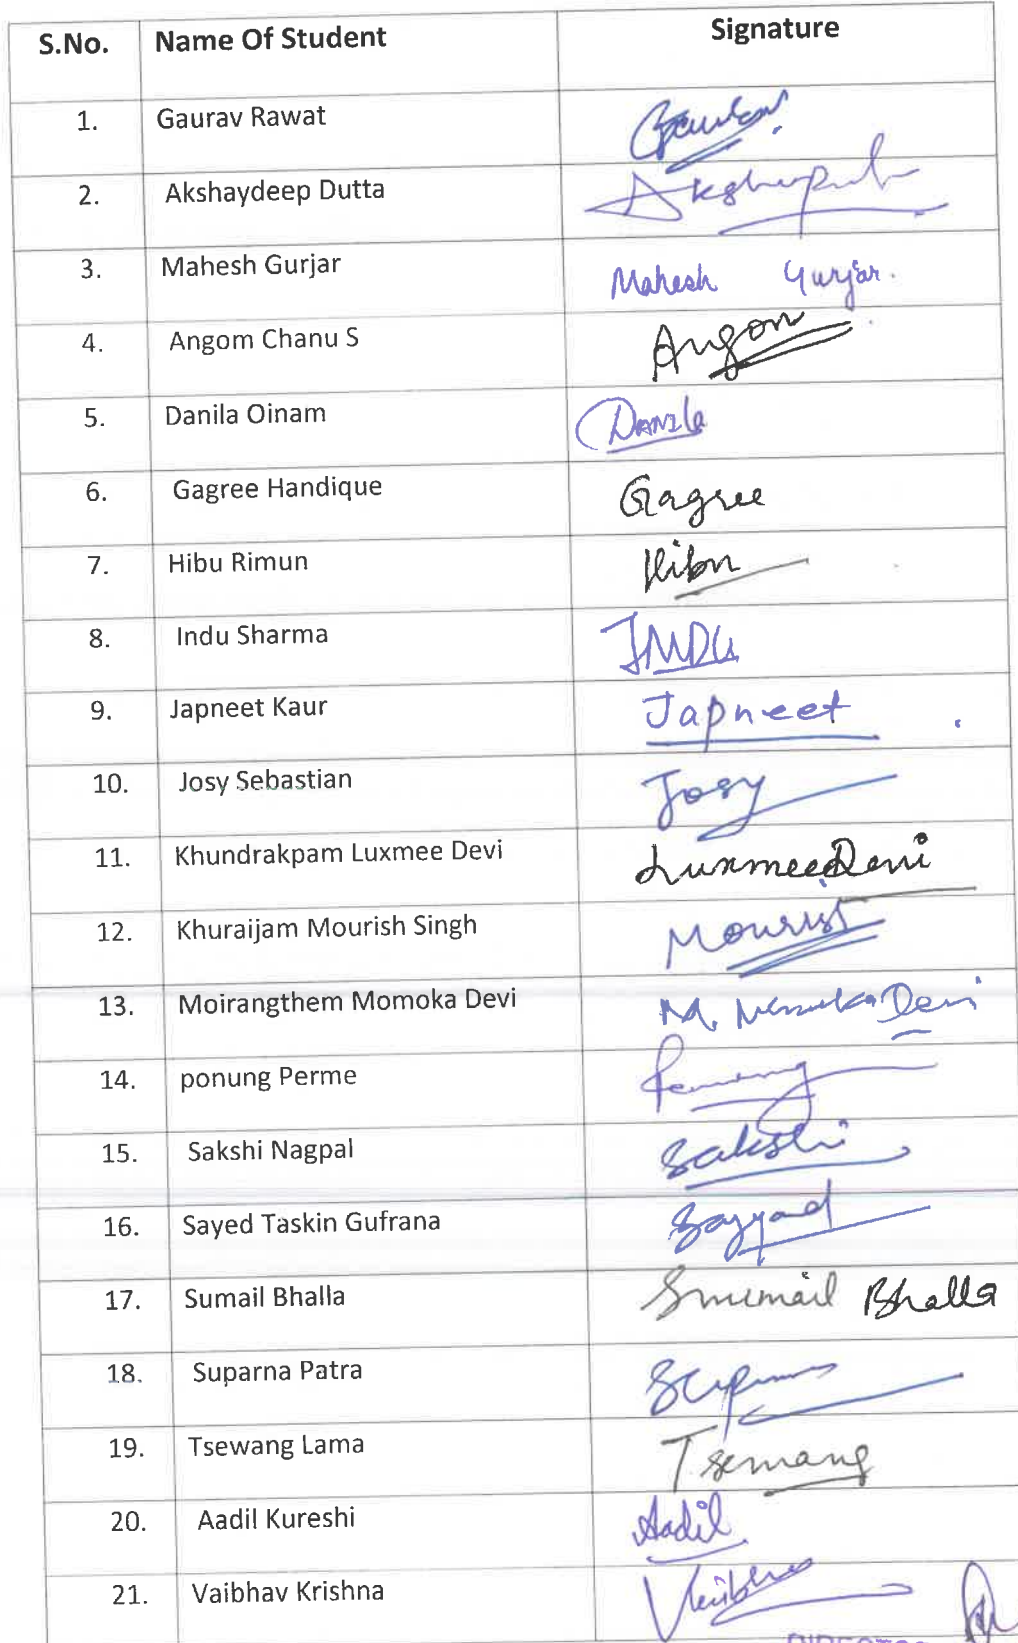 S.No. Name Of Student Signature
1. Gaurav Rawat Gaurav
2. Akshaydeep Dutta
3. Mahesh Gurjar Mahesh Gurjar.
4. Angom Chanu S Angom
5. Danila Oinam Danila
6. Gagree Handique Gagree
7. Hibu Rimun Hibu
8. Indu Sharma INDU
9. Japneet Kaur Japneet
10. Josy Sebastian Josy
11. Khundrakpam Luxmee Devi Luxmee Devi
12. Khuraijam Mourish Singh Mourish
13. Moirangthem Momoka Devi M. Devi
14. ponung Perme
15. Sakshi Nagpal Sakshi
16. Sayed Taskin Gufrana Sayyad
17. Sumail Bhalla Bhalla
18. Suparna Patra
19. Tsewang Lama Tsewang
20. Aadil Kureshi Aadil
21. Vaibhav Krishna